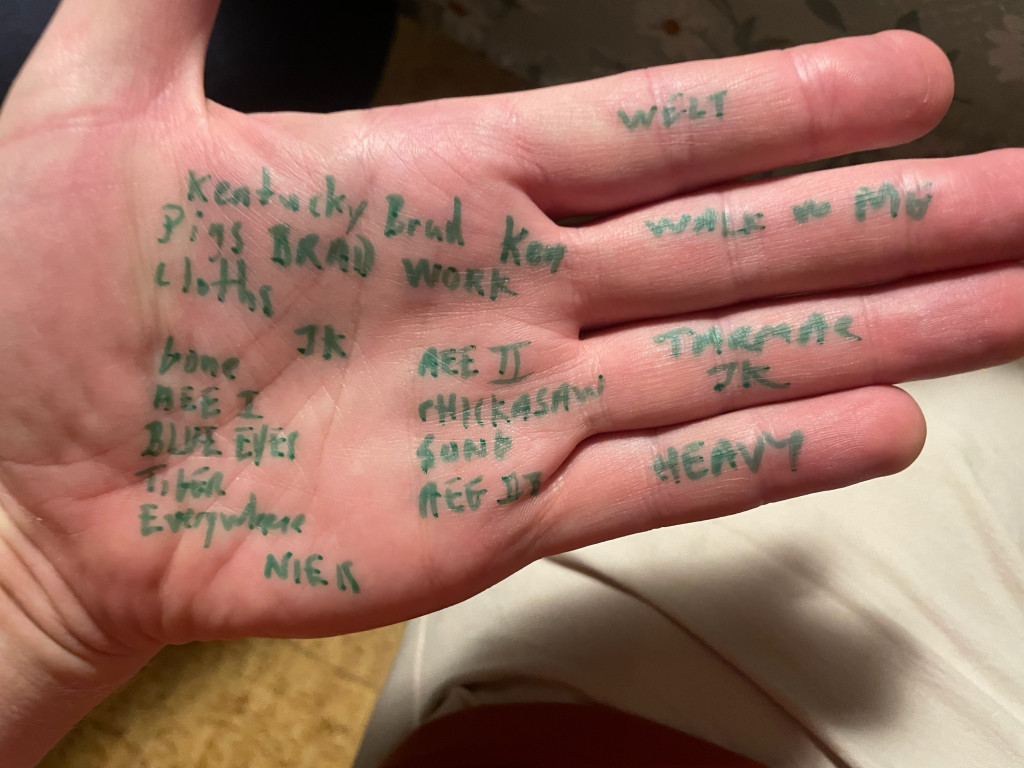 WELT
WALK W ME
Kentucky Brad Key
Pigs BRAD WORK
cloths
JK
bone
AEE I
BLUE EYES
TIGER
Everywhere
NIER
AEE II
CHICKASAW
SONG
AEG III
JK
HEAVY